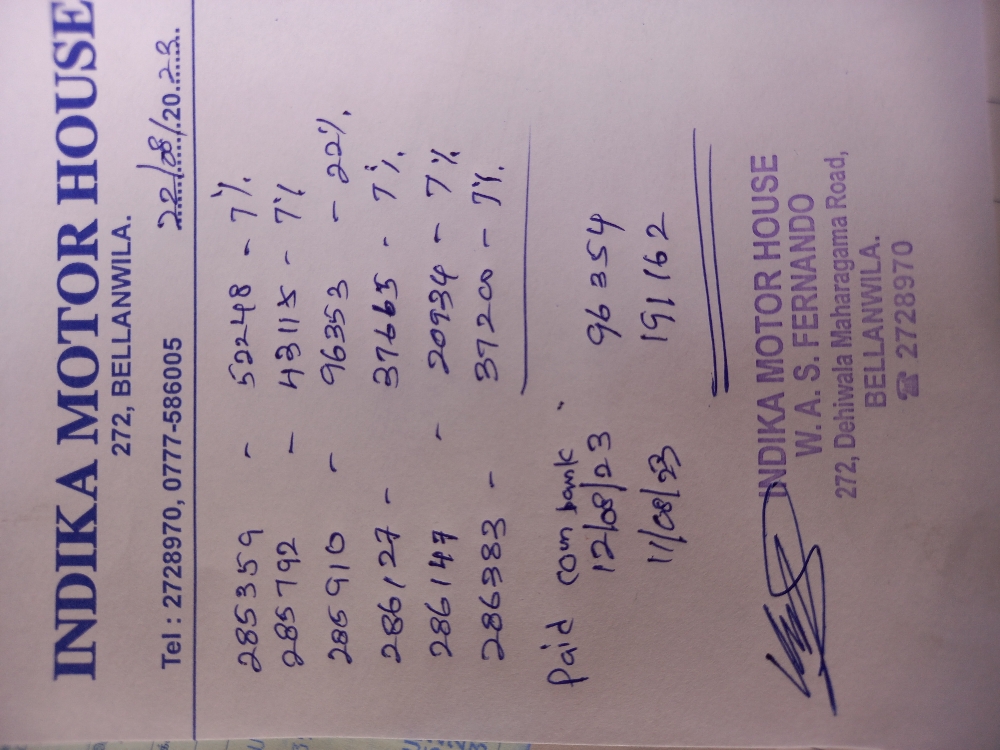 INDIKA MOTOR HOUSE
272, BELLANWILA.
Tel : 2728970, 07777-586005 22/08/20.23
285359 - 52248 - 7%
285792 - 43115 - 7%
285910 - 96353 - 22%
286127 - 37665 - 7%
286147 - 20934 - 7%
286383 - 37200 - 7%
Paid com bank
12/08/23 96354
11/08/23 191162
INDIKA MOTOR HOUSE
W. A. S. FERNANDO
272, Dehiwala Maharagama Road,
BELLANWILA.
☎ 2728970